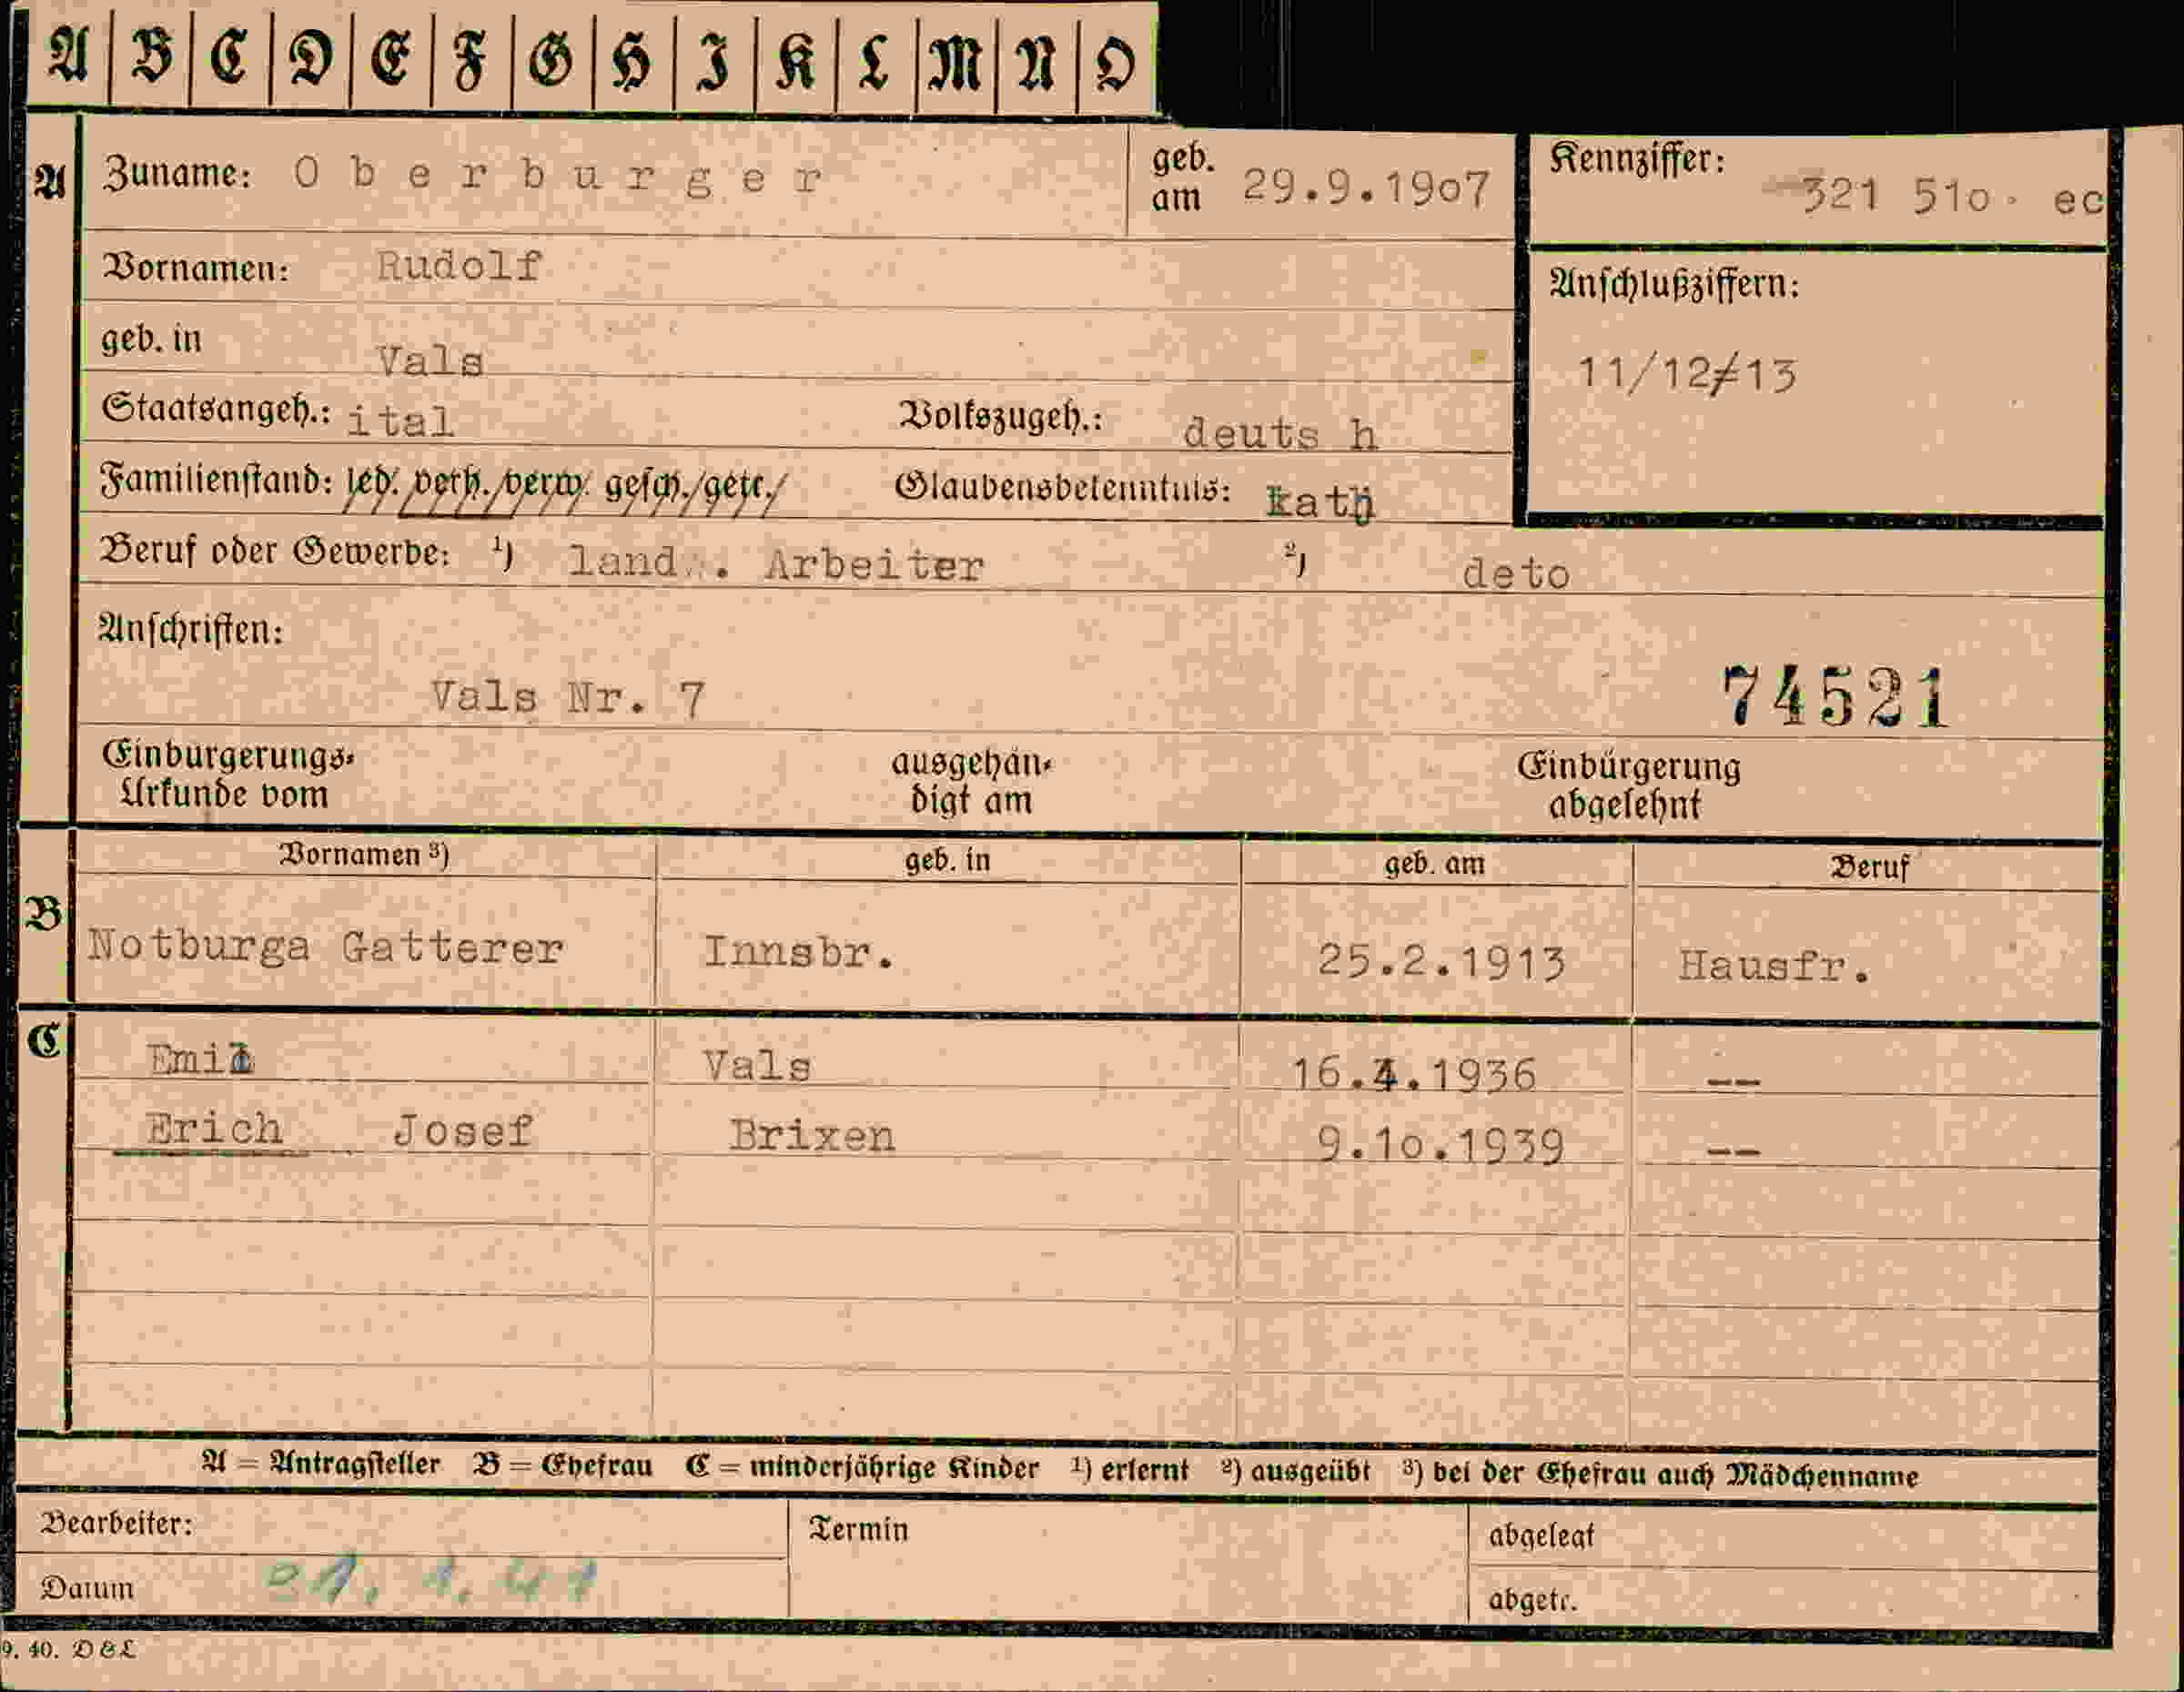 A B C D E F G H I K L M N O
A Zuname: Oberburger geb. am 29.9.1907 Kennziffer: 321 510. ec
Vornamen: Rudolf
Anschlußziffern:
geb. in Vals
11/12/13
Staatsangeh.: ital Volkszugeh.: deuts h
Familienstand: led./verh./verw./gesch./getr./ Glaubensbekenntnis: kath
Beruf oder Gewerbe: ¹) land . Arbeiter ²) deto
Anschriften:
Vals Nr. 7
74521
Einbürgerungs-Urkunde vom ausgehändigt am Einbürgerung abgelehnt
Vornamen ³) geb. in geb. am Beruf
B Notburga Gatterer Innsbr. 25.2.1913 Hausfr.
C Vals 16. .1936 --
Erich Josef Brixen 9.10.1939 --
A = Antragsteller B = Ehefrau C = minderjährige Kinder ¹) erlernt ²) ausgeübt ³) bei der Ehefrau auch Mädchenname
Bearbeiter: Termin abgelegt
Datum 1.41 abgetr.
9. 40. D&L